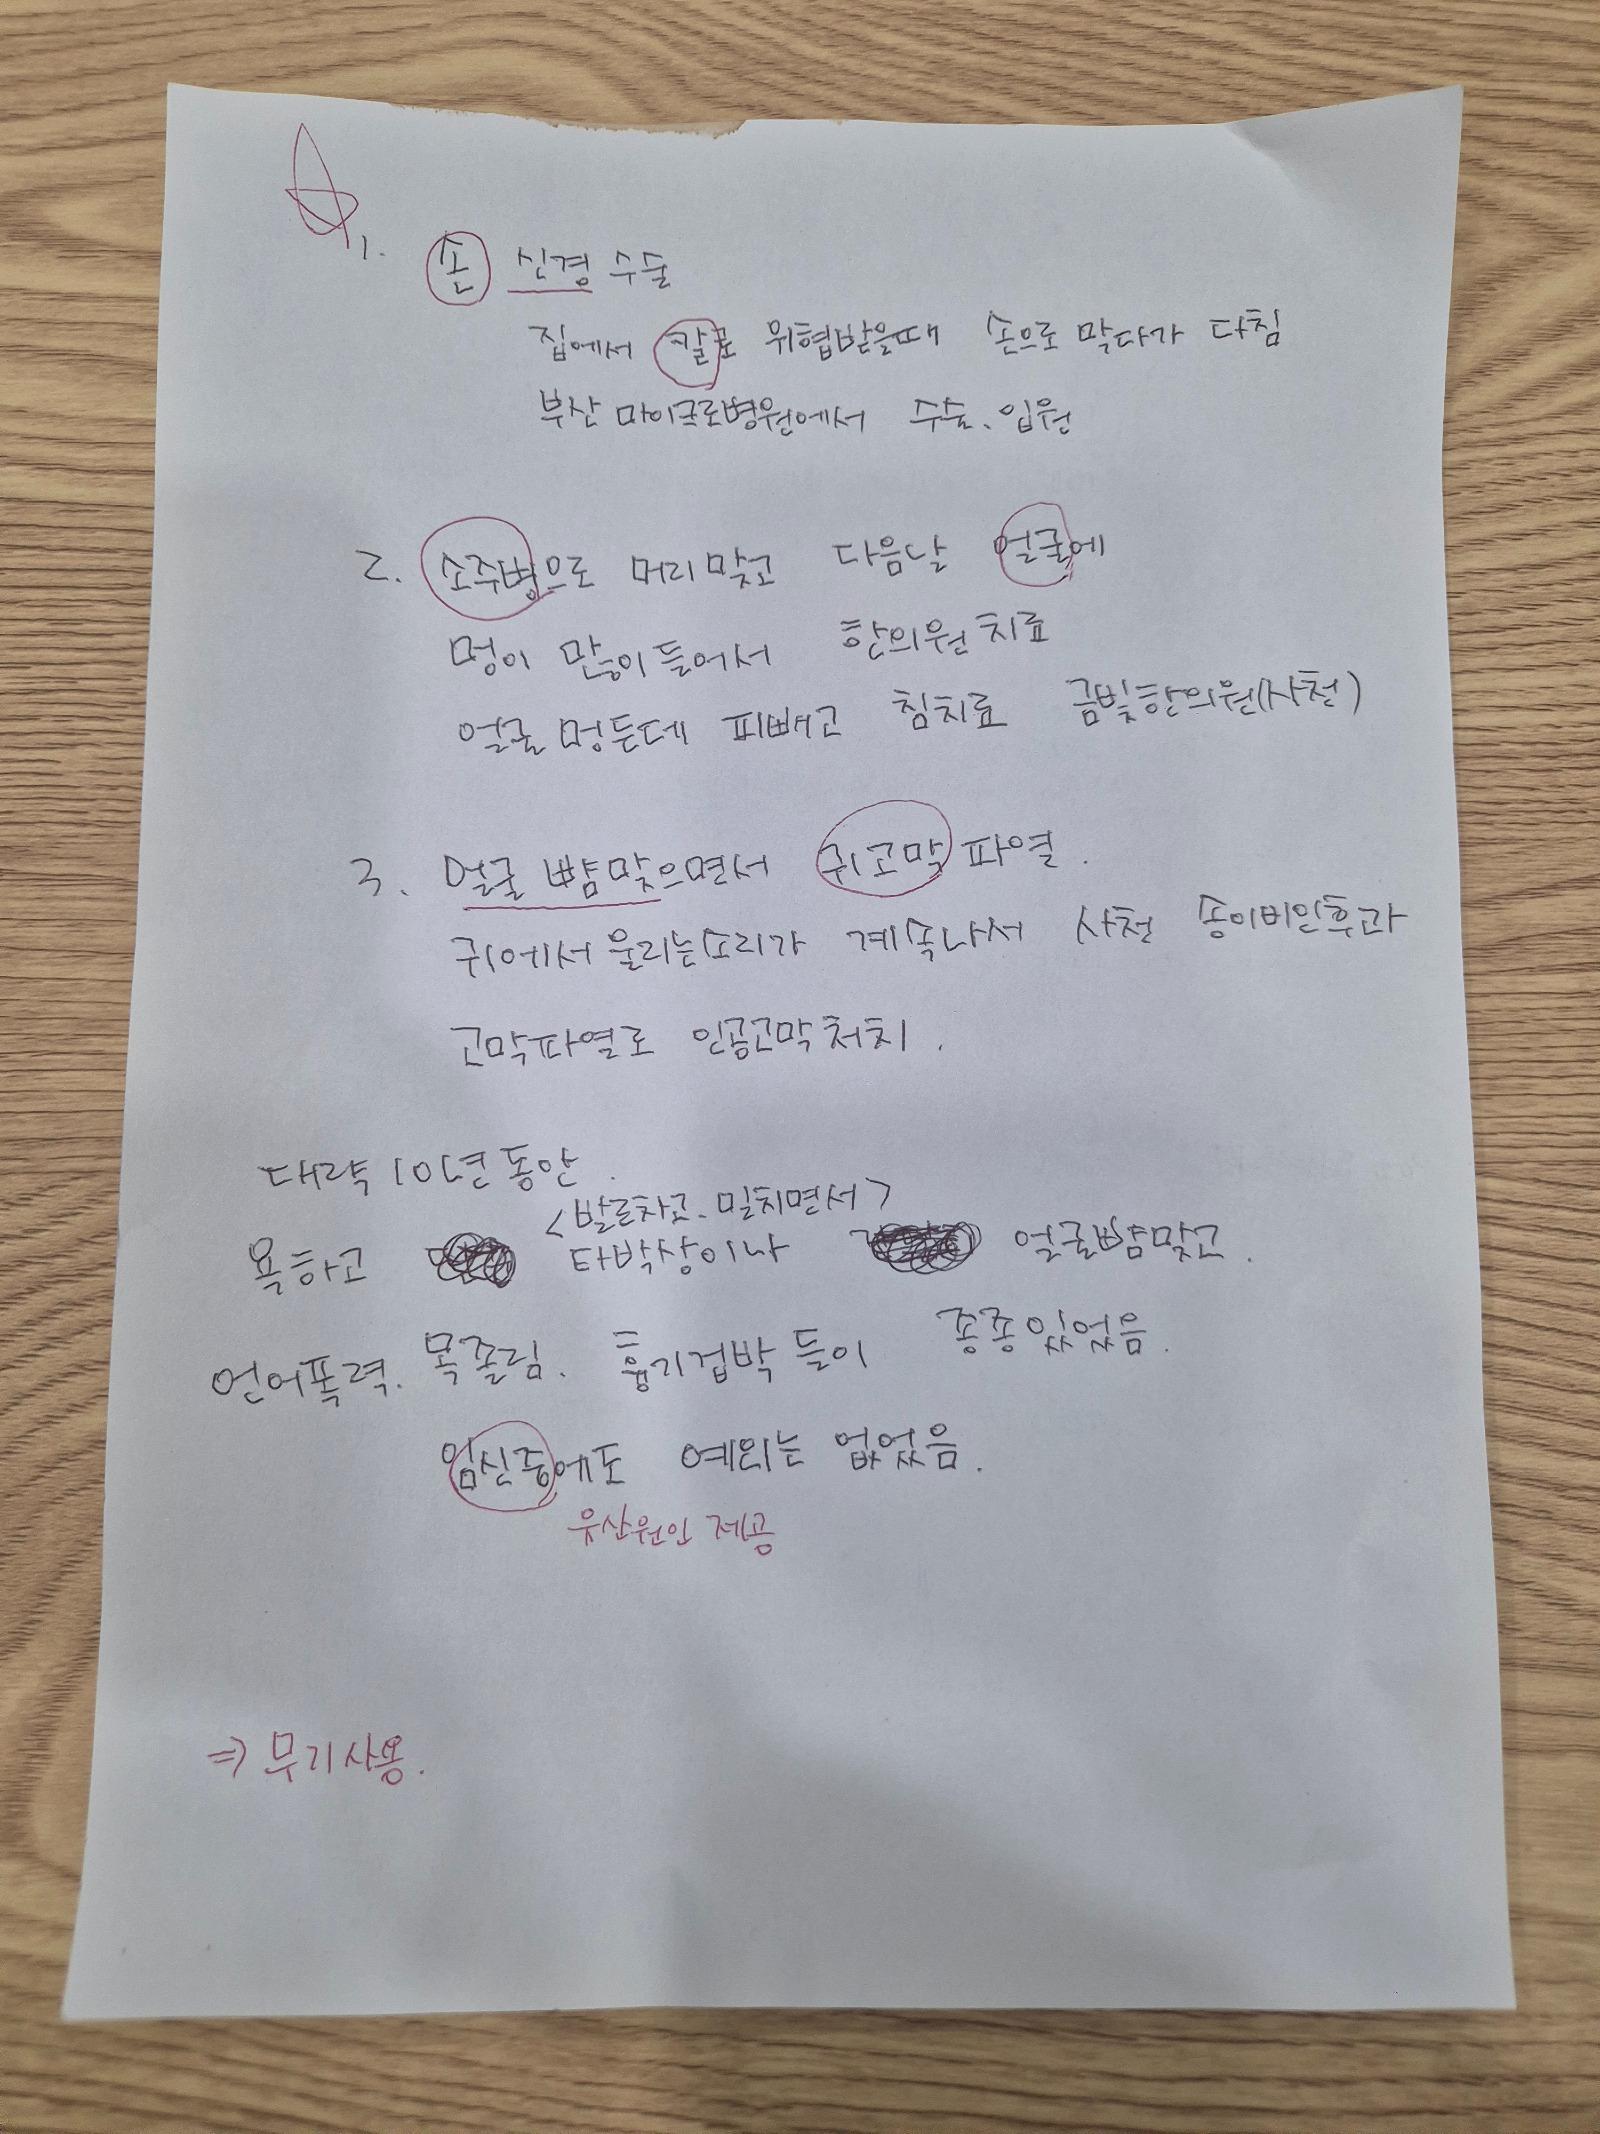 1. 손 신경 수술
집에서 칼로 위협받을때 손으로 막다가 다침
부산 마이크로병원에서 수술. 입원
2. 소주병으로 머리 맞고 다음날 얼굴에
멍이 많이 들어서 한의원 치료
얼굴 멍든데 피빼고 침치료 금빛한의원(사천)
3. 얼굴 뺨맞으면서 귀고막 파열.
귀에서 울리는소리가 계속나서 사천 송이비인후과
고막파열로 인공고막처치.
대략 10년 동안.
<발로차고. 밀치면서>
욕하고 타박상이나 얼굴뺨맞고.
언어폭력. 목졸림. 흉기겁박 들이 종종있었음.
임신중에도 예외는 없었음.
유산원인 제공
⇒ 무기사용.